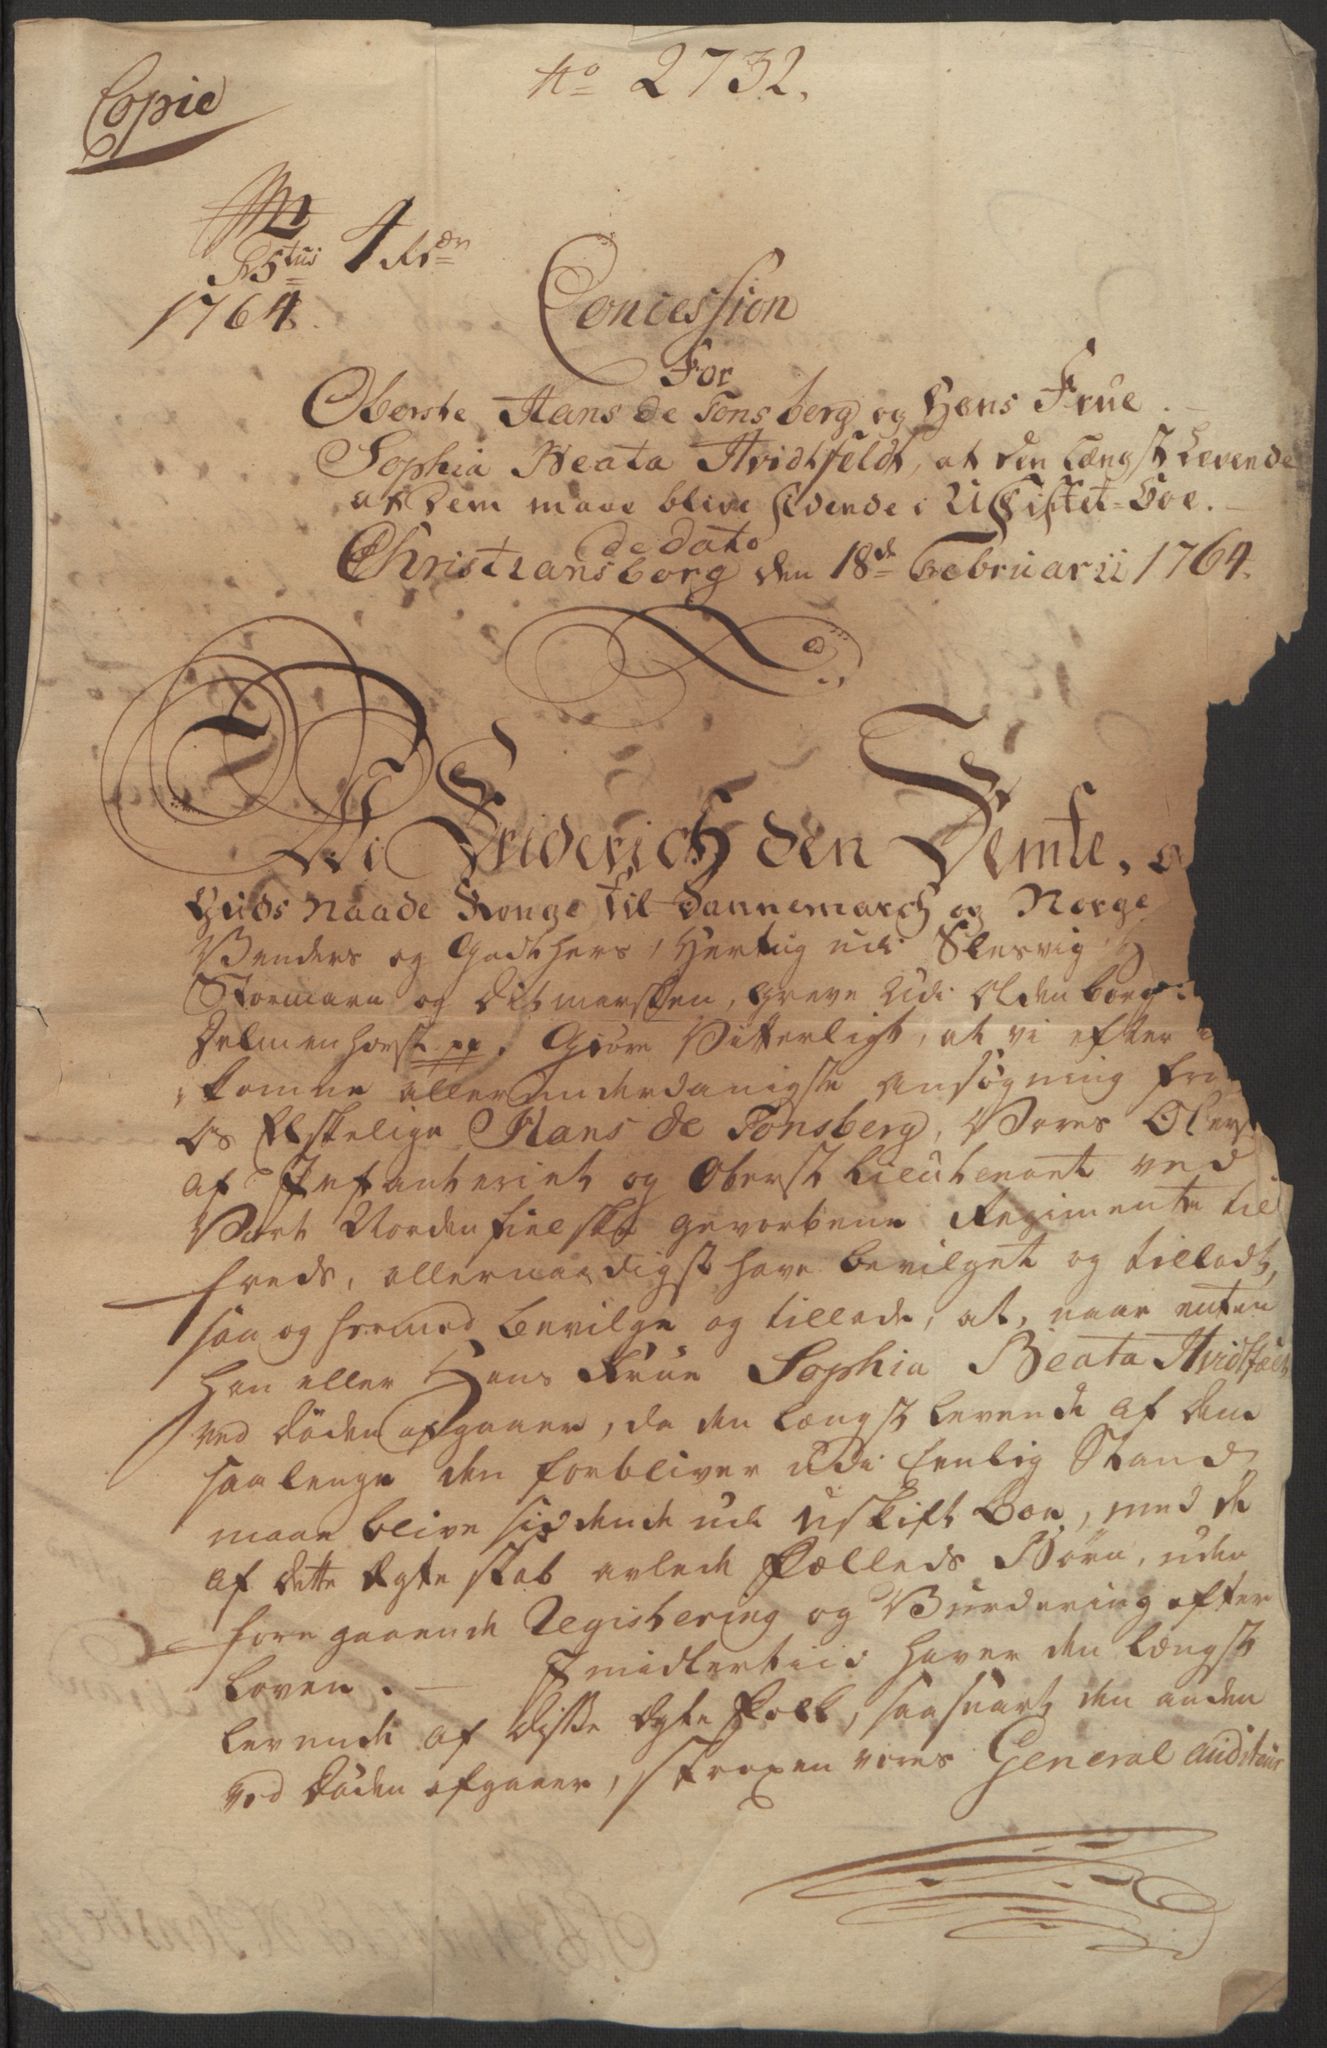 Copie
No 2732.
4 Rdr
1764.
Concession
For
Oberste Hans de Tonsberg og Hans Frue
Sophia Beata Hvidtfeldt, at den Længst Levende
af Dem maae blive sidende i Uskiftet-Boe.
de dato
Christiansborg den 18de Februarii 1764.
Wi Friderich den Femte,
Guds Naade Konge til Dannemarch og Norge
Venders og Gothers, Hertug udi Slesvig H
Stormarn og Ditmersken, Greve Udi Oldenborg
Delmenhorst pp. Giöre Vitterligt, at vi efter
komne allerunderdanigste Ansøgning fra
Os Elskelige Hans de Tonsberg, Vores Oberst
af Infanteriet og Oberst Lieutenant ved
Vort Nordenfielske gevorbene Regimente til
freds, allernaadigst have bevilget og tilladt,
saa og hermed bevilge og tillade, at, naar enten
han eller Hans Frue Sophia Beata Hvidtfeld
ved Døden afgaaer, da den længst levende af dem
saalenge den forbliver udi Eenlig Stand,
maae blive siddende udi uskift Boe, med de
af dette Ægteskab avlede Fælleds Börn, uden
foregaaende Registering og Vurdering efter
Loven. Imidlertiid haver den længst
levende af disse Ægte Folk, saasnart den anden
ved Døden afgaaer, strax en vores General Auditeur